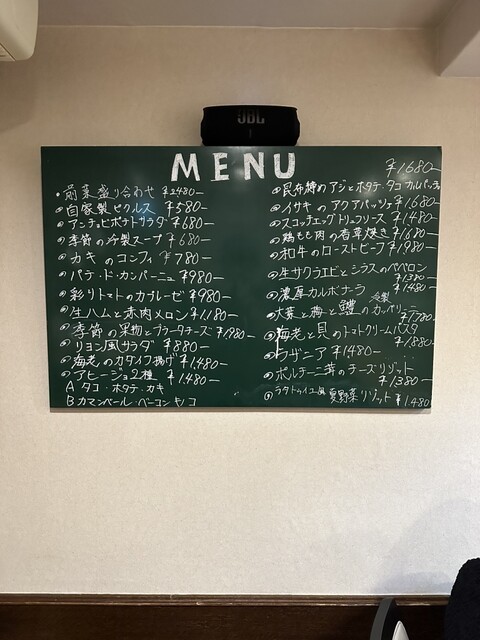 JBL
MENU
前菜盛り合わせ ¥2480-
自家製ピクルス ¥580-
アンチョビポテトサラダ ¥680-
季節の冷製スープ ¥680-
カキのコンフィ ¥780-
パテ・ド・カンパーニュ ¥980-
彩りトマトのカプレーゼ ¥980-
生ハムと赤肉メロン ¥1,180-
季節の果物とブラータチーズ ¥1,980-
リヨン風サラダ ¥880-
海老のカダイフ揚げ ¥1,480-
アヒージョ2種 ¥1,480-
A タコ・ホタテ・カキ
B カマンベール・ベーコン キノコ
¥1680-
昆布締めアジとホタテ・タコ カルパッチョ
イサキのアクアパッツァ ¥1,680-
スコッチエッグトリュフソース ¥1480-
鶏もも肉の香草焼き ¥1680-
和牛のローストビーフ ¥1980-
生サクラエビとシラスのペペロン
¥1380-
濃厚カルボナーラ ¥1480-
冷製
大葉と梅と鱧のカッペリーニ
¥1780-
海老と貝のトマトクリームパスタ
¥1880-
ラザニア ¥1480-
ポルチーニ茸のチーズリゾット
¥1380-
ラタトゥイユ風 夏野菜リゾット ¥1,480-